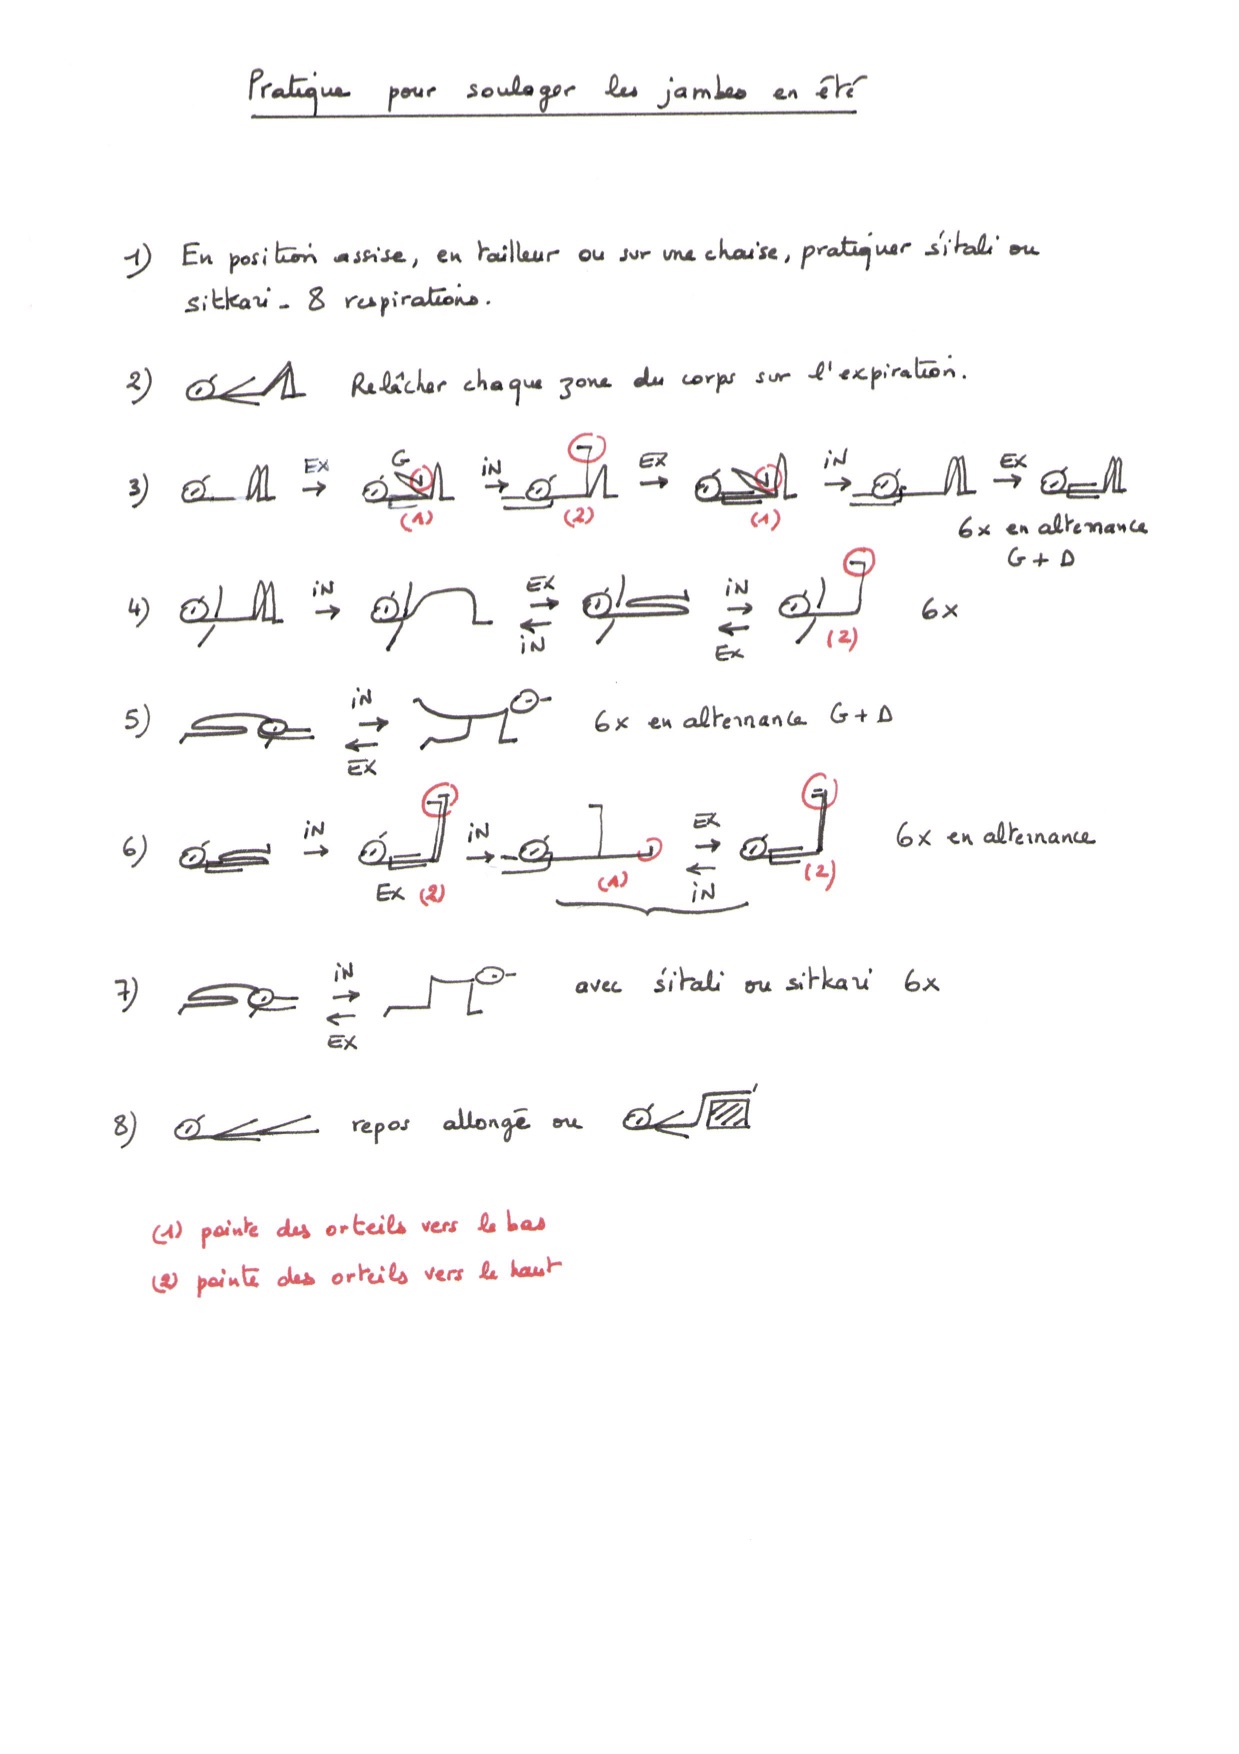 Pratique pour soulager les jambes en été
1) En position assise, en tailleur ou sur une chaise, pratiquer śitali ou
sitkari - 8 respirations.
2) Relâcher chaque zone du corps sur l'expiration.
3) EX G iN EX iN EX
(1) (2) (1)
6x en alternance
G + D
4) iN EX iN 6x
iN EX (2)
5) iN 6x en alternance G + D
EX
6) iN iN EX 6x en alternance
EX (2) (1) iN (2)
7) iN avec śitali ou sitkari 6x
EX
8) repos allongé ou
(1) pointe des orteils vers le bas
(2) pointe des orteils vers le haut